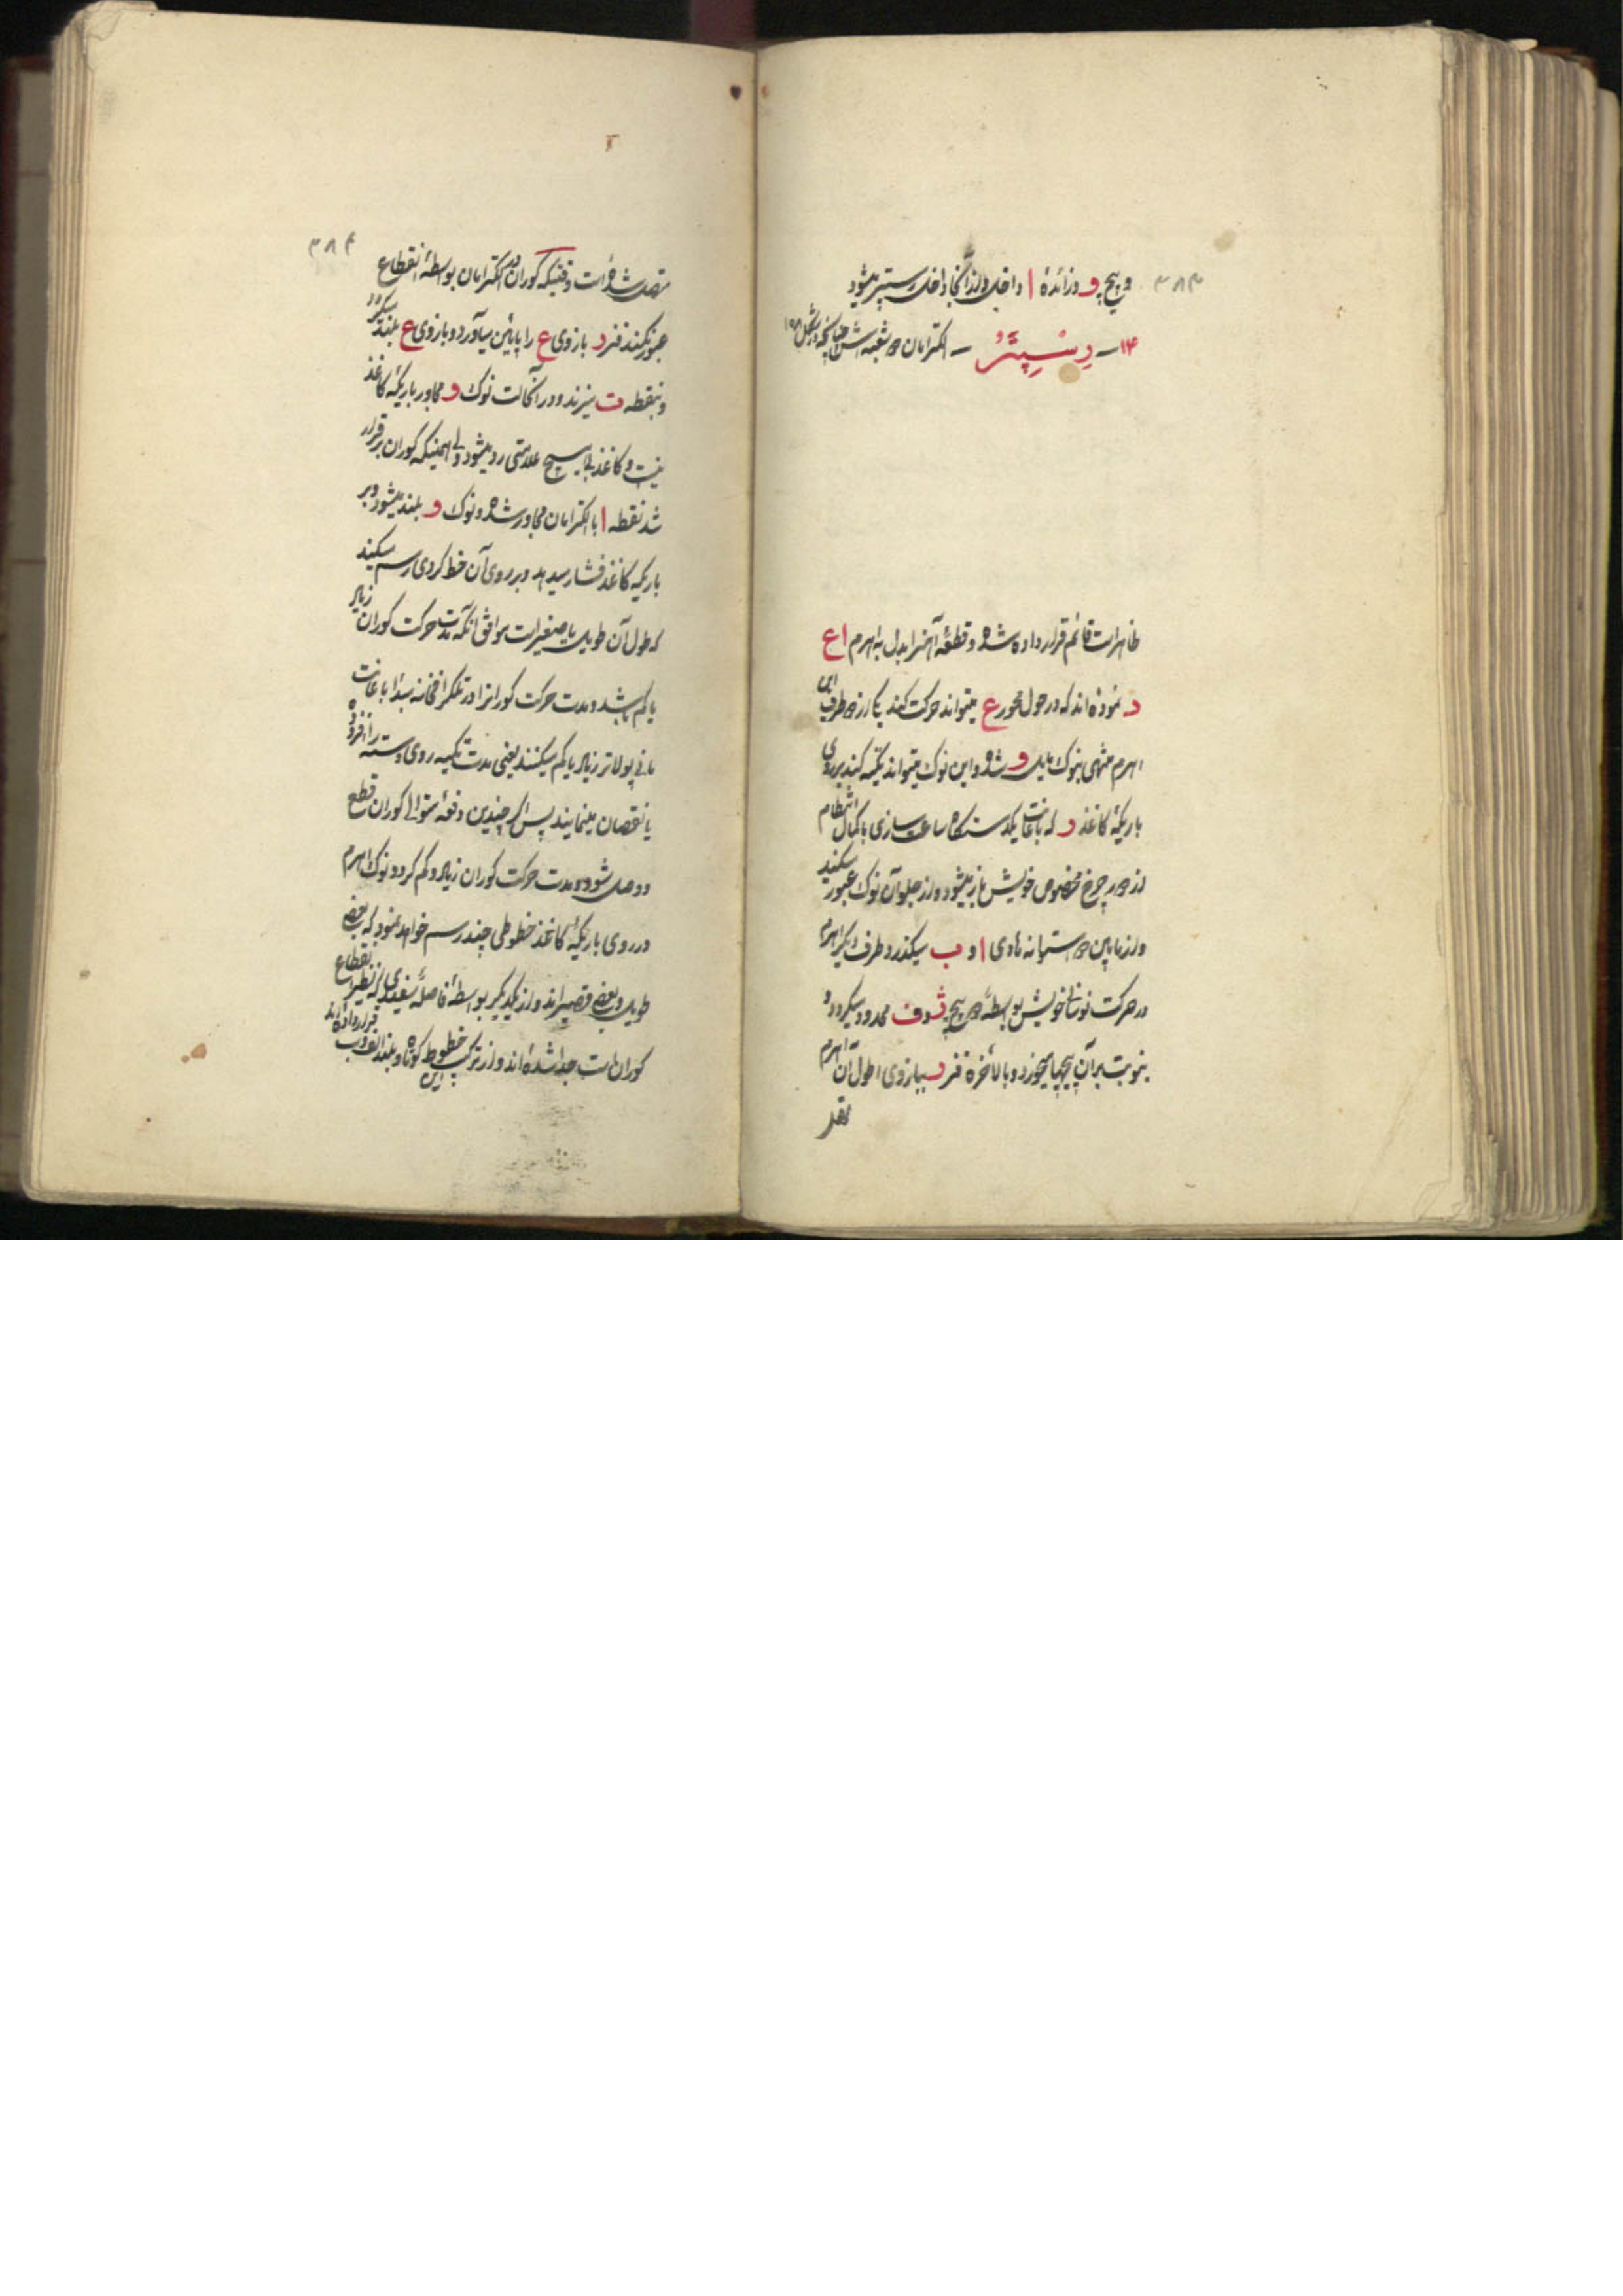 ۳۸۳
و پیچ و وزائدهٔ ا داخل و از آنجا داخل رسپتر میشود
۱۴ – رِسِپتُر – الکترامان دو شعبه اش چنانچه در شکل ۱۵۸
ظاهر است قائم قرار داده شده و قطعهٔ آهنرا بدل به اهرم ا ع
د نموده اند که در حول محور ع میتواند حرکت کند یکی از دو طرف این
اهرم منتهی بنوک مایل و شده و این نوک میتواند تکیه کند بر روی
باریکهٔ کاغذ د که باعانت یکدستگاه ساعت سازی با کمال انتظام
از دور چرخ مخصوص خویش باز میشود و از جلو آن نوک عبور میکند
و از مابین دو استوانه های ا و ب میگذرد و طرف دیگر اهرم
در حرکت نوسانی خویش بواسطهٔ دو پیچ ق و ف محدود میگردد و
بنوبت بر آن پیچها میخورد و بالاخره فنر د ببازوی اطول آن اهرم
متصل
۳۸۴
متصل شده است وقتیکه کوران در الکترامان بواسطهٔ انقطاع
عبور نکند فنر د بازوی ع را پایین میآورد و بازوی ع بلند میگردد
و بنقطه ت میزند و در آنحالت نوک و مجاور باریکهٔ کاغذ
نیست و کاغذ بی هیچ علامتی رد میشود ولی همینکه کوران برقرار
شد نقطه ا با الکترامان مجاور شده و نوک و بلند میشود و بر
باریکهٔ کاغذ فشار میدهد و بر روی آن خط کردی رسم میکند
که طول آن طویل یا صغیر است موافق آنکه مدت حرکت کوران زیاد
یا کم باشد و مدت حرکت کورانرا در تلگرافخانه مبدا باعانت
مانیپولاتر زیاد یا کم میکنند یعنی مدت تکیه روی دسته را افزوده
یا نقصان مینمایند پس اگر چندین دفعهٔ متوالی کوران قطع
و وصل شود و مدت حرکت کوران زیاد و کم گردد نوک اهرم
در روی باریکهٔ کاغذ خطوطی چند رسم خواهد نمود که بعض
طویل و بعض قصیر اند و از یکدیگر بواسطهٔ فاصلهٔ سفیدی که نظیر انقطاع
کوران است جدا شده اند و از ترکیب این خطوط کوتاه و بلند الف و ب قرار داده اند